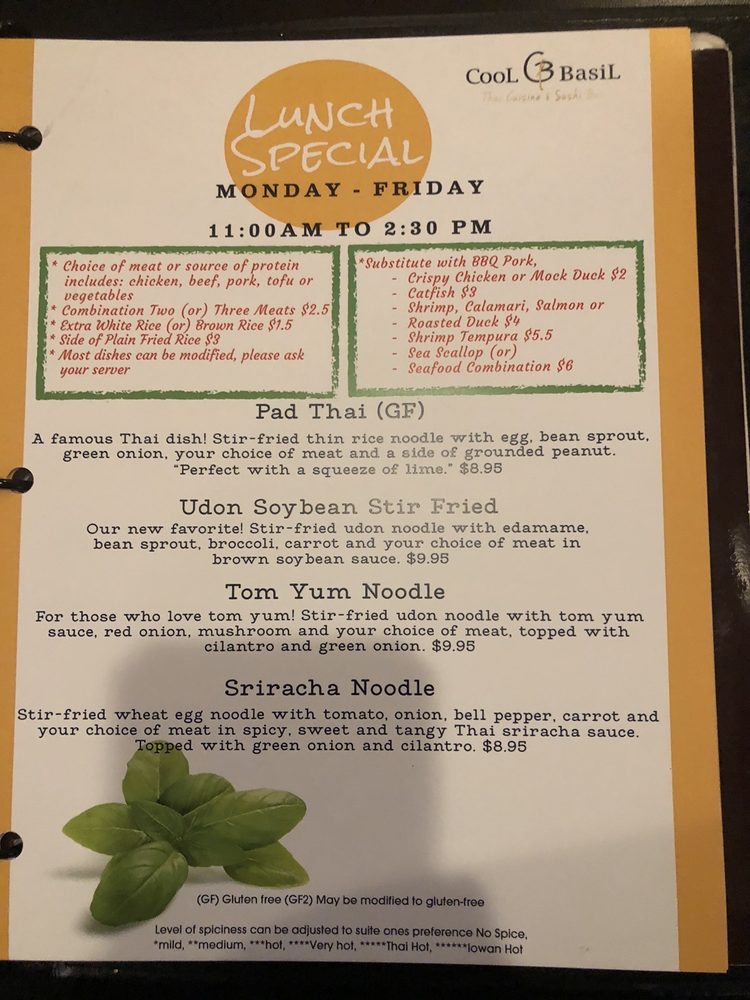 CooL CB BasiL
Thai Cuisine & Sushi
LUNCH
SPECIAL
MONDAY - FRIDAY
11:00AM TO 2:30 PM
* Choice of meat or source of protein
includes: chicken, beef, pork, tofu or
vegetables
* Combination Two (or) Three Meats $2.5
* Extra White Rice (or) Brown Rice $1.5
* Side of Plain Fried Rice $3
* Most dishes can be modified, please ask
your server
*Substitute with BBQ Pork,
- Crispy Chicken or Mock Duck $2
- Catfish $3
- Shrimp, Calamari, Salmon or
- Roasted Duck $4
- Shrimp Tempura $5.5
- Sea Scallop (or)
- Seafood Combination $6
Pad Thai (GF)
A famous Thai dish! Stir-fried thin rice noodle with egg, bean sprout,
green onion, your choice of meat and a side of grounded peanut.
"Perfect with a squeeze of lime." $8.95
Udon Soybean Stir Fried
Our new favorite! Stir-fried udon noodle with edamame,
bean sprout, broccoli, carrot and your choice of meat in
brown soybean sauce. $9.95
Tom Yum Noodle
For those who love tom yum! Stir-fried udon noodle with tom yum
sauce, red onion, mushroom and your choice of meat, topped with
cilantro and green onion. $9.95
Sriracha Noodle
Stir-fried wheat egg noodle with tomato, onion, bell pepper, carrot and
your choice of meat in spicy, sweet and tangy Thai sriracha sauce.
Topped with green onion and cilantro. $8.95
(GF) Gluten free (GF2) May be modified to gluten-free
Level of spiciness can be adjusted to suite ones preference No Spice,
*mild, **medium, ***hot, ****Very hot, *****Thai Hot, ******Iowan Hot